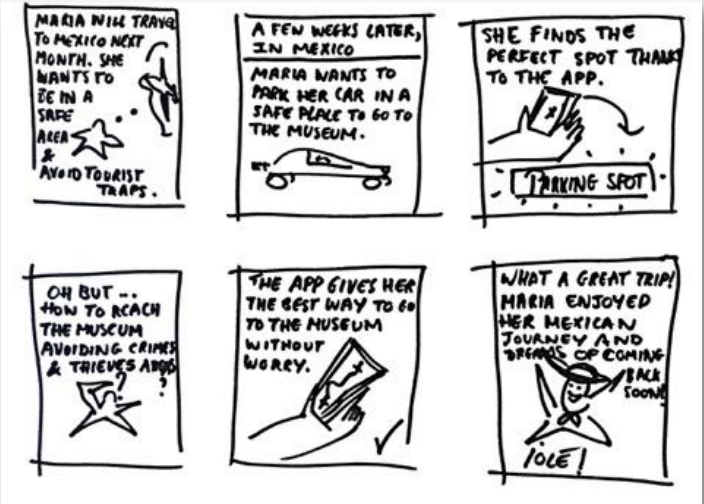 MARIA WILL TRAVEL
TO MEXICO NEXT
MONTH. SHE
WANTS TO
BE IN A
SAFE
AREA
&
AVOID TOURIST
TRAPS.
A FEW WEEKS LATER,
IN MEXICO
MARIA WANTS TO
PARK HER CAR IN A
SAFE PLACE TO GO TO
THE MUSEUM.
SHE FINDS THE
PERFECT SPOT THANKS
TO THE APP.
X
PARKING SPOT
OH BUT...
HOW TO REACH
THE MUSEUM
AVOIDING CRIMES
& THIEVES
?
?
THE APP GIVES HER
THE BEST WAY TO GO
TO THE MUSEUM
WITHOUT
WORRY.
WHAT A GREAT TRIP!
MARIA ENJOYED
HER MEXICAN
JOURNEY AND
DREAMS OF COMING
BACK
SOON!
¡OLE!